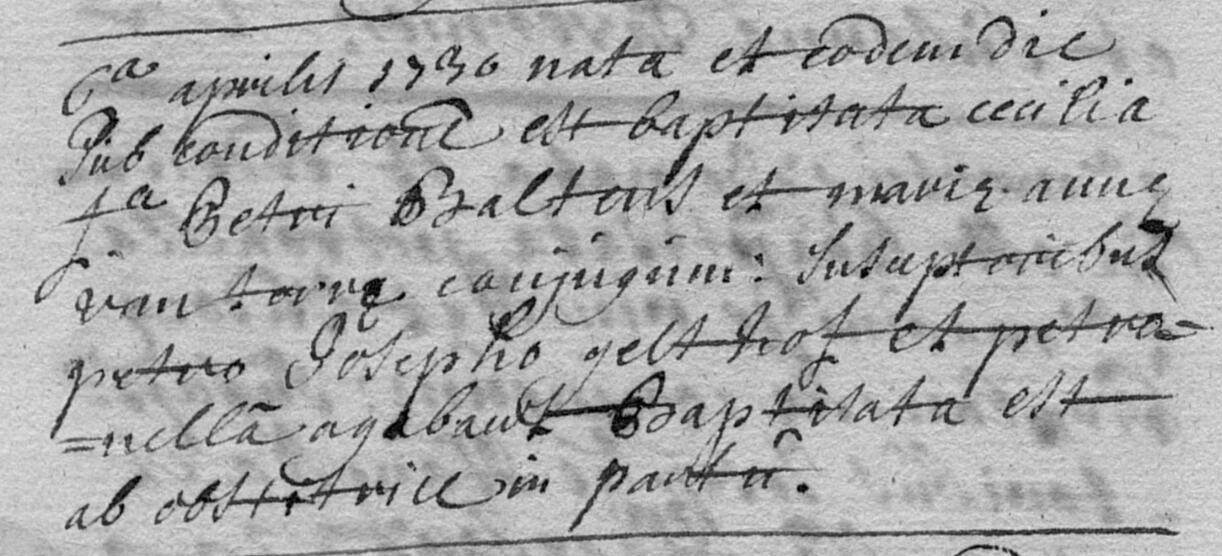 6a aprilis 1730 nata et eodem die
sub conditione est baptitata cecilia
fa Petri Baltus et mariæ annæ
van conjugum: susceptoribus
petro Josepho gelt hof et petro=
=nellā Baptisata est
ab obstetrice in partū.